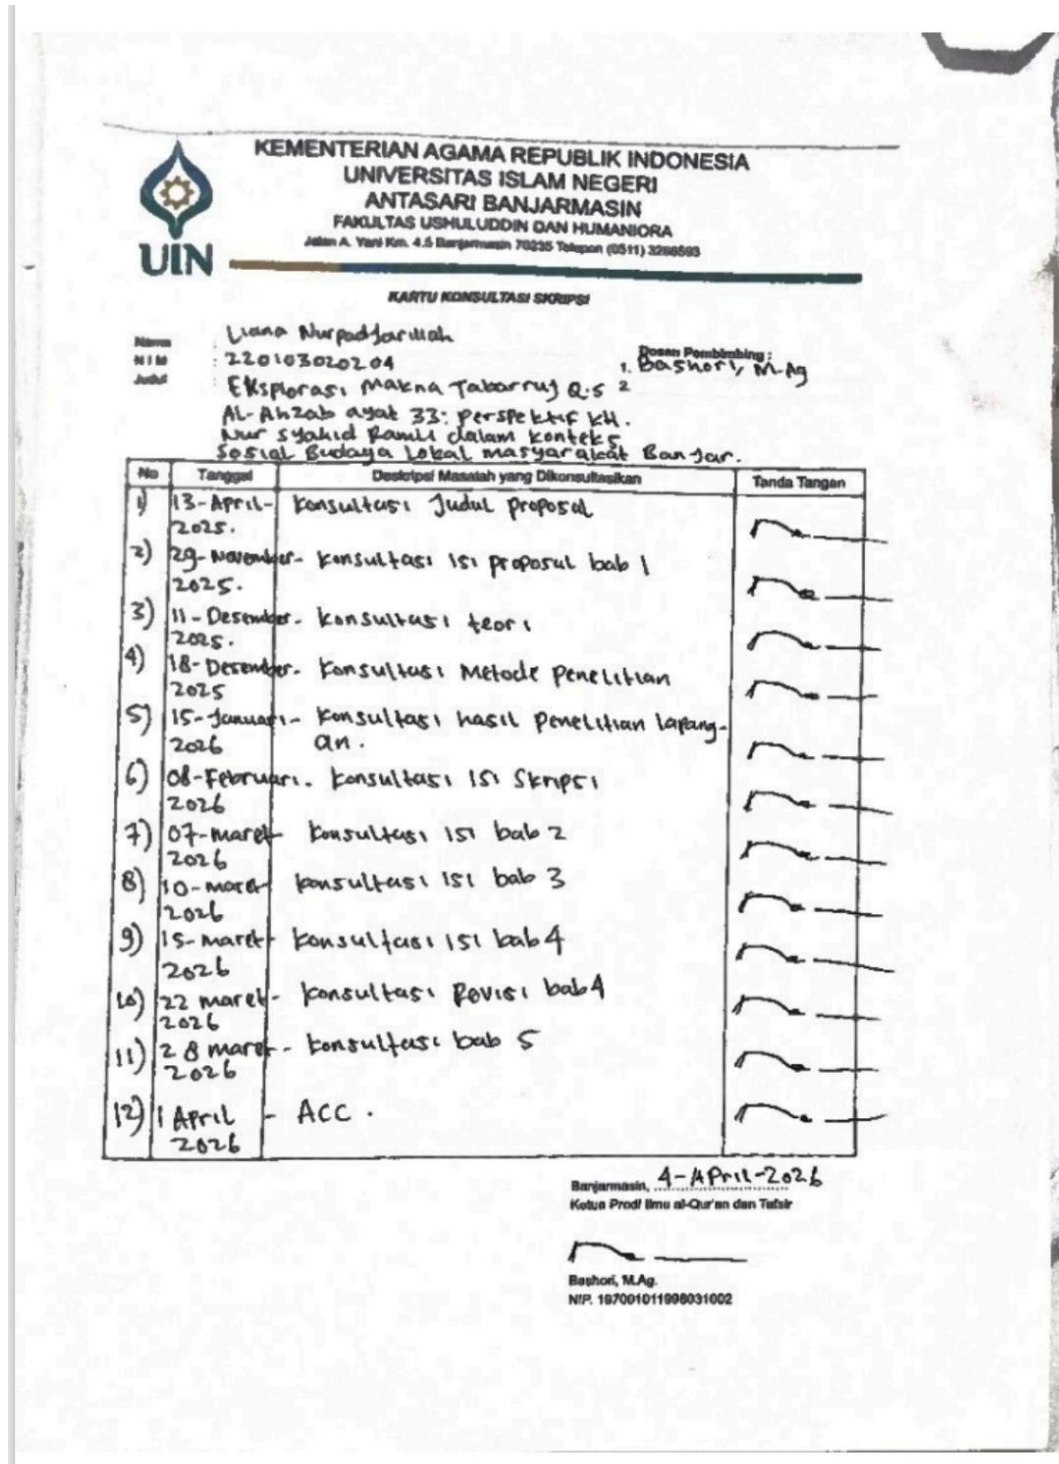 KEMENTERIAN AGAMA REPUBLIK INDONESIA
UNIVERSITAS ISLAM NEGERI
ANTASARI BANJARMASIN
FAKULTAS USHULUDDIN DAN HUMANIORA
Jalan A. Yani Km. 4.5 Banjarmasin 70235 Telepon (0511) 3266593
UIN
KARTU KONSULTASI SKRIPSI
Nama : Liana Nurpadjarillah
NIM : 220103020204
Dosen Pembimbing :
1. Bashori, M.Ag
2
Judul : Eksplorasi Makna Tabarruj Q.S
AL-Ahzab ayat 33: perspektif KH.
Nur Syahid Ramli dalam konteks
Sosial Budaya Lokal masyarakat Banjar.
No Tanggal Deskripsi Masalah yang Dikonsultasikan Tanda Tangan
1) 13-April- konsultasi Judul proposal
2025.
2) 29-November- konsultasi isi proposal bab 1
2025.
3) 11-Desember- konsultasi teori
2025.
4) 18-Desember- konsultasi Metode Penelitian
2025
5) 15-Januari- konsultasi hasil penelitian lapang-
2026 an.
6) 08-Februari. konsultasi isi Skripsi
2026
7) 07-maret- konsultasi isi bab 2
2026
8) 10-maret konsultasi isi bab 3
2026
9) 15-maret- konsultasi isi bab 4
2026
10) 22 maret- konsultasi Revisi bab 4
2026
11) 28 maret- konsultasi bab 5
2026
12) 1 April - ACC.
2026
Banjarmasin, 4-April-2026
Ketua Prodi Ilmu al-Qur'an dan Tafsir
Bashori, M.Ag.
NIP. 197001011998031002